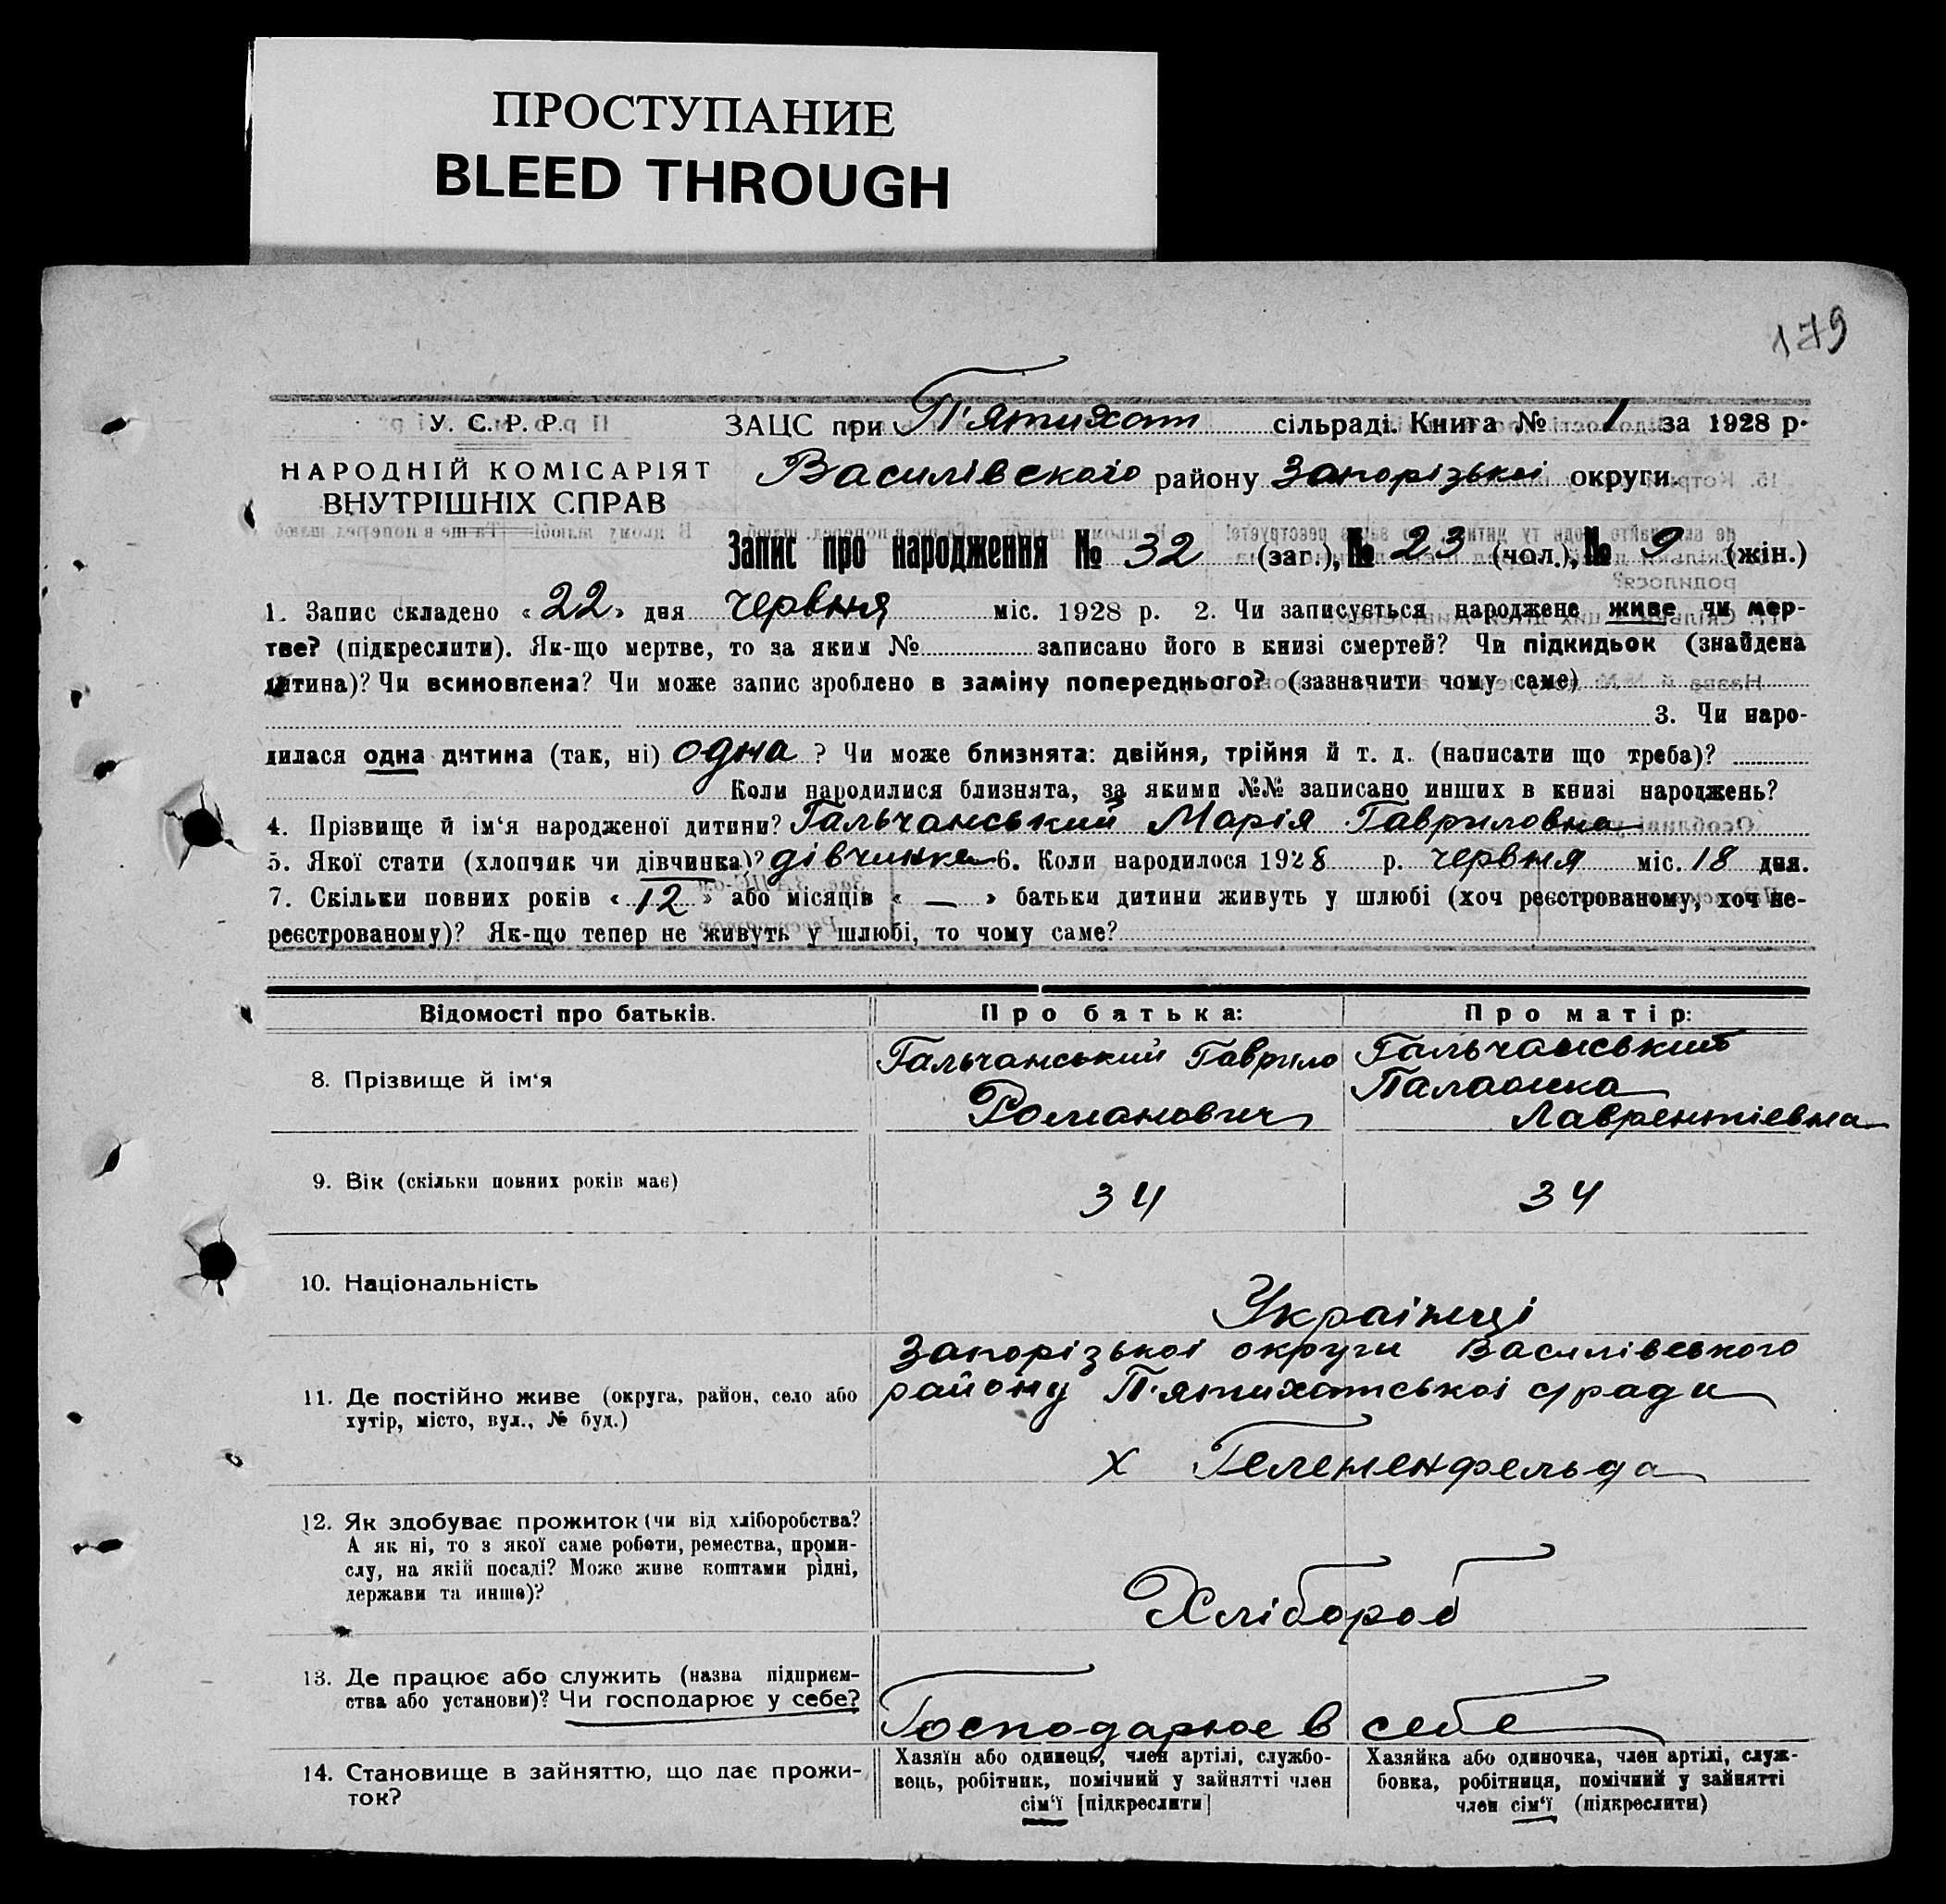 ПРОСТУПАНИЕ
BLEED THROUGH
179
У. С. Р. Р.
НАРОДНІЙ КОМІСАРІЯТ
ВНУТРІШНІХ СПРАВ
ЗАЦС при П'ятихат сільраді. Книга № 1 за 1928 р.
Василівского району Запорізькоі округи.
Запис про народження № 32 (заг.), № 23 (чол.), № 9 (жін.)
1. Запис складено « 22 » дня червня міс. 1928 р. 2. Чи записується народжене живе чи мер-
тве? (підкреслити). Як-що мертве, то за яким № записано його в книзі смертей? Чи підкидьок (знайдена
дитина)? Чи всиновлена? Чи може запис зроблено в заміну попереднього? (зазначити чому саме)
3. Чи наро-
дилася одна дитина (так, ні) одна ? Чи може близнята: двійня, трійня й т. д. (написати що треба)?
Коли народилися близнята, за якими №№ записано инших в книзі народжень?
4. Прізвище й ім'я народженої дитини? Гальчанський Марія Гавриловна
5. Якої стати (хлопчик чи дівчинка)? дівчинка 6. Коли народилося 1928 р. червня міс. 18 дня.
7. Скільки повних років « 12 » або місяців « — » батьки дитини живуть у шлюбі (хоч реєстрованому, хоч не-
реєстрованому)? Як-що тепер не живуть у шлюбі, то чому саме?
Відомості про батьків. Про батька: Про матір:
8. Прізвище й ім'я
Гальчанський Гаврило
Романович
Гальчанський
Палажка
Лаврентіевна
9. Вік (скільки повних років має)
34 34
10. Національність
Украінці
11. Де постійно живе (округа, район, село або
хутір, місто, вул., № буд.)
Запорізькоі округи Василівского
району П'ятихатськоі с/ради
х Гелененфельда
12. Як здобуває прожиток (чи від хліборобства?
А як ні, то з якої саме роботи, ремества, проми-
слу, на якій посаді? Може живе коштами рідні,
держави та инше)?
Хлібороб
13. Де працює або служить (назва підприєм-
ства або установи)? Чи господарює у себе?
Господарює в себе
14. Становище в зайняттю, що дає прожи-
ток?
Хазяїн або одинець, член артілі, службо-
вець, робітник, помічний у зайнятті член
сім'ї [підкреслити]
Хазяйка або одиночка, член артілі, служ-
бовка, робітниця, помічний у зайнятті
член сім'ї (підкреслити)